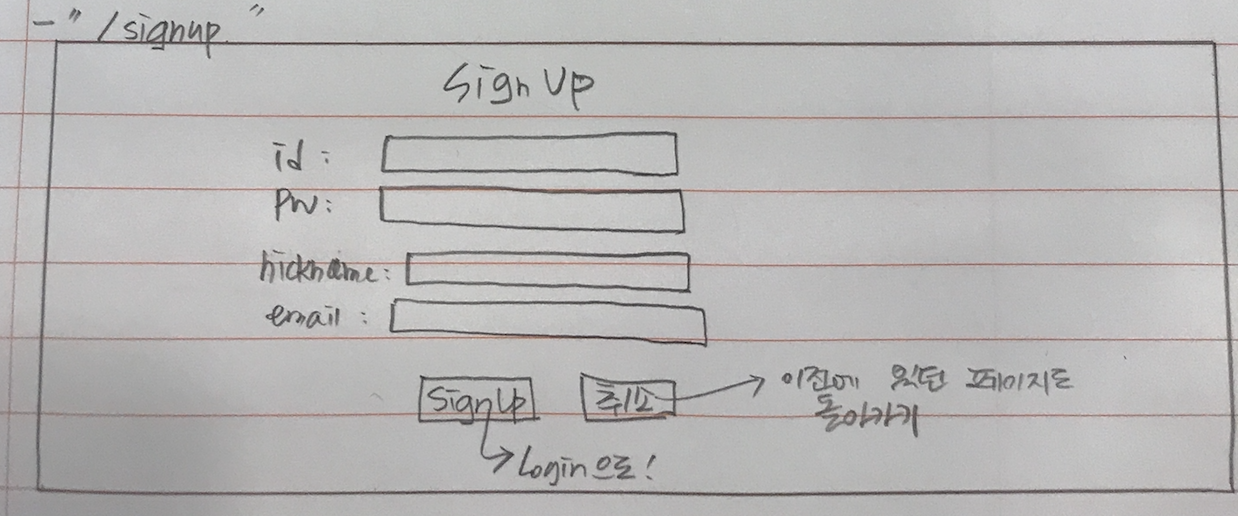 - "/signup"
Sign Up
id :
PW :
nickname :
email :
Sign Up
취소
→ 이전에 있던 페이지로
돌아가기
→ Login으로!